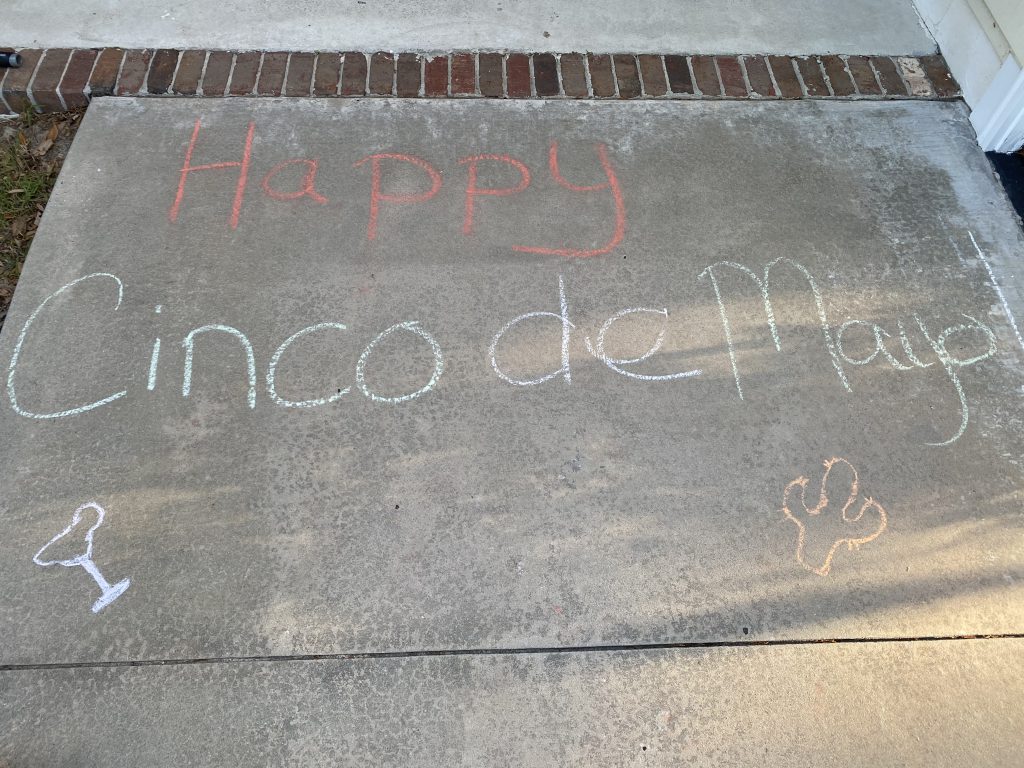 Happy
Cinco de Mayo